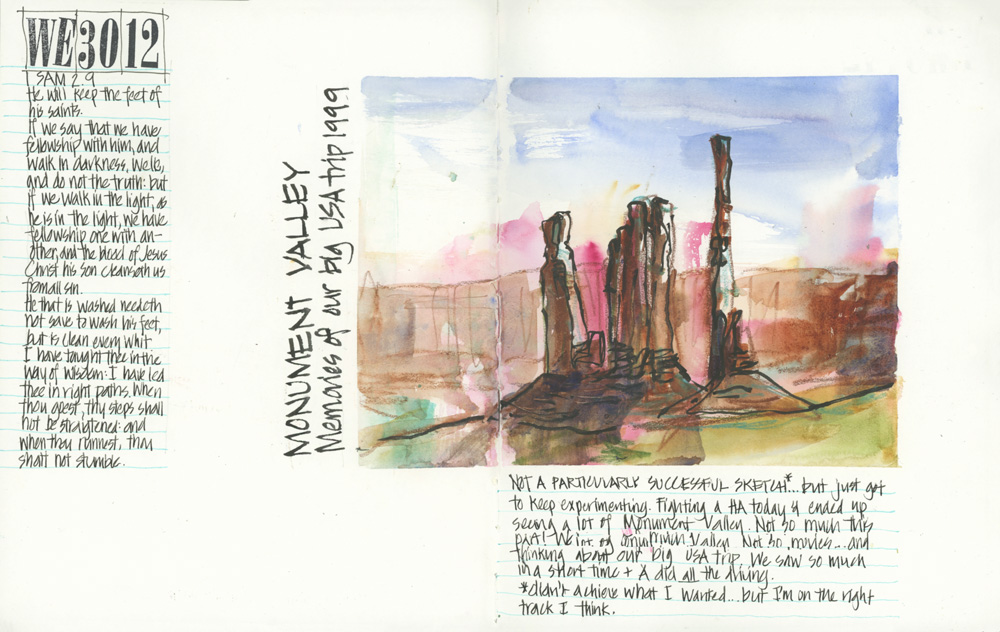 WE3012
1 SAM 2.9
He will keep the feet of
his saints.
If we say that we have
fellowship with him, and
walk in darkness, we lie,
and do not the truth: but
if we walk in the light, as
he is in the light, we have
fellowship one with an-
other, and the blood of Jesus
Christ his son cleanseth us
from all sin.
He that is washed needeth
not save to wash his feet,
but is clean every whit
I have taught thee in the
way of wisdom: I have led
thee in right paths. When
thou goest, thy steps shall
not be straigtened: and
when thou runnest, thou
shalt not stumble.
MONUMENT VALLEY
Memories of our big USA trip 1999
NOT A PARTICULARLY SUCCESSFUL SKETCH*... but just got
to keep experimenting. Fighting a HA today & ended up
seeing a lot of Monument Valley. Not so much this
part! Valley. Not so movies... and
thinking about our big USA trip. We saw so much
in a short time + A did all the driving.
*didn't achieve what I wanted... but I'm on the right
track I think.